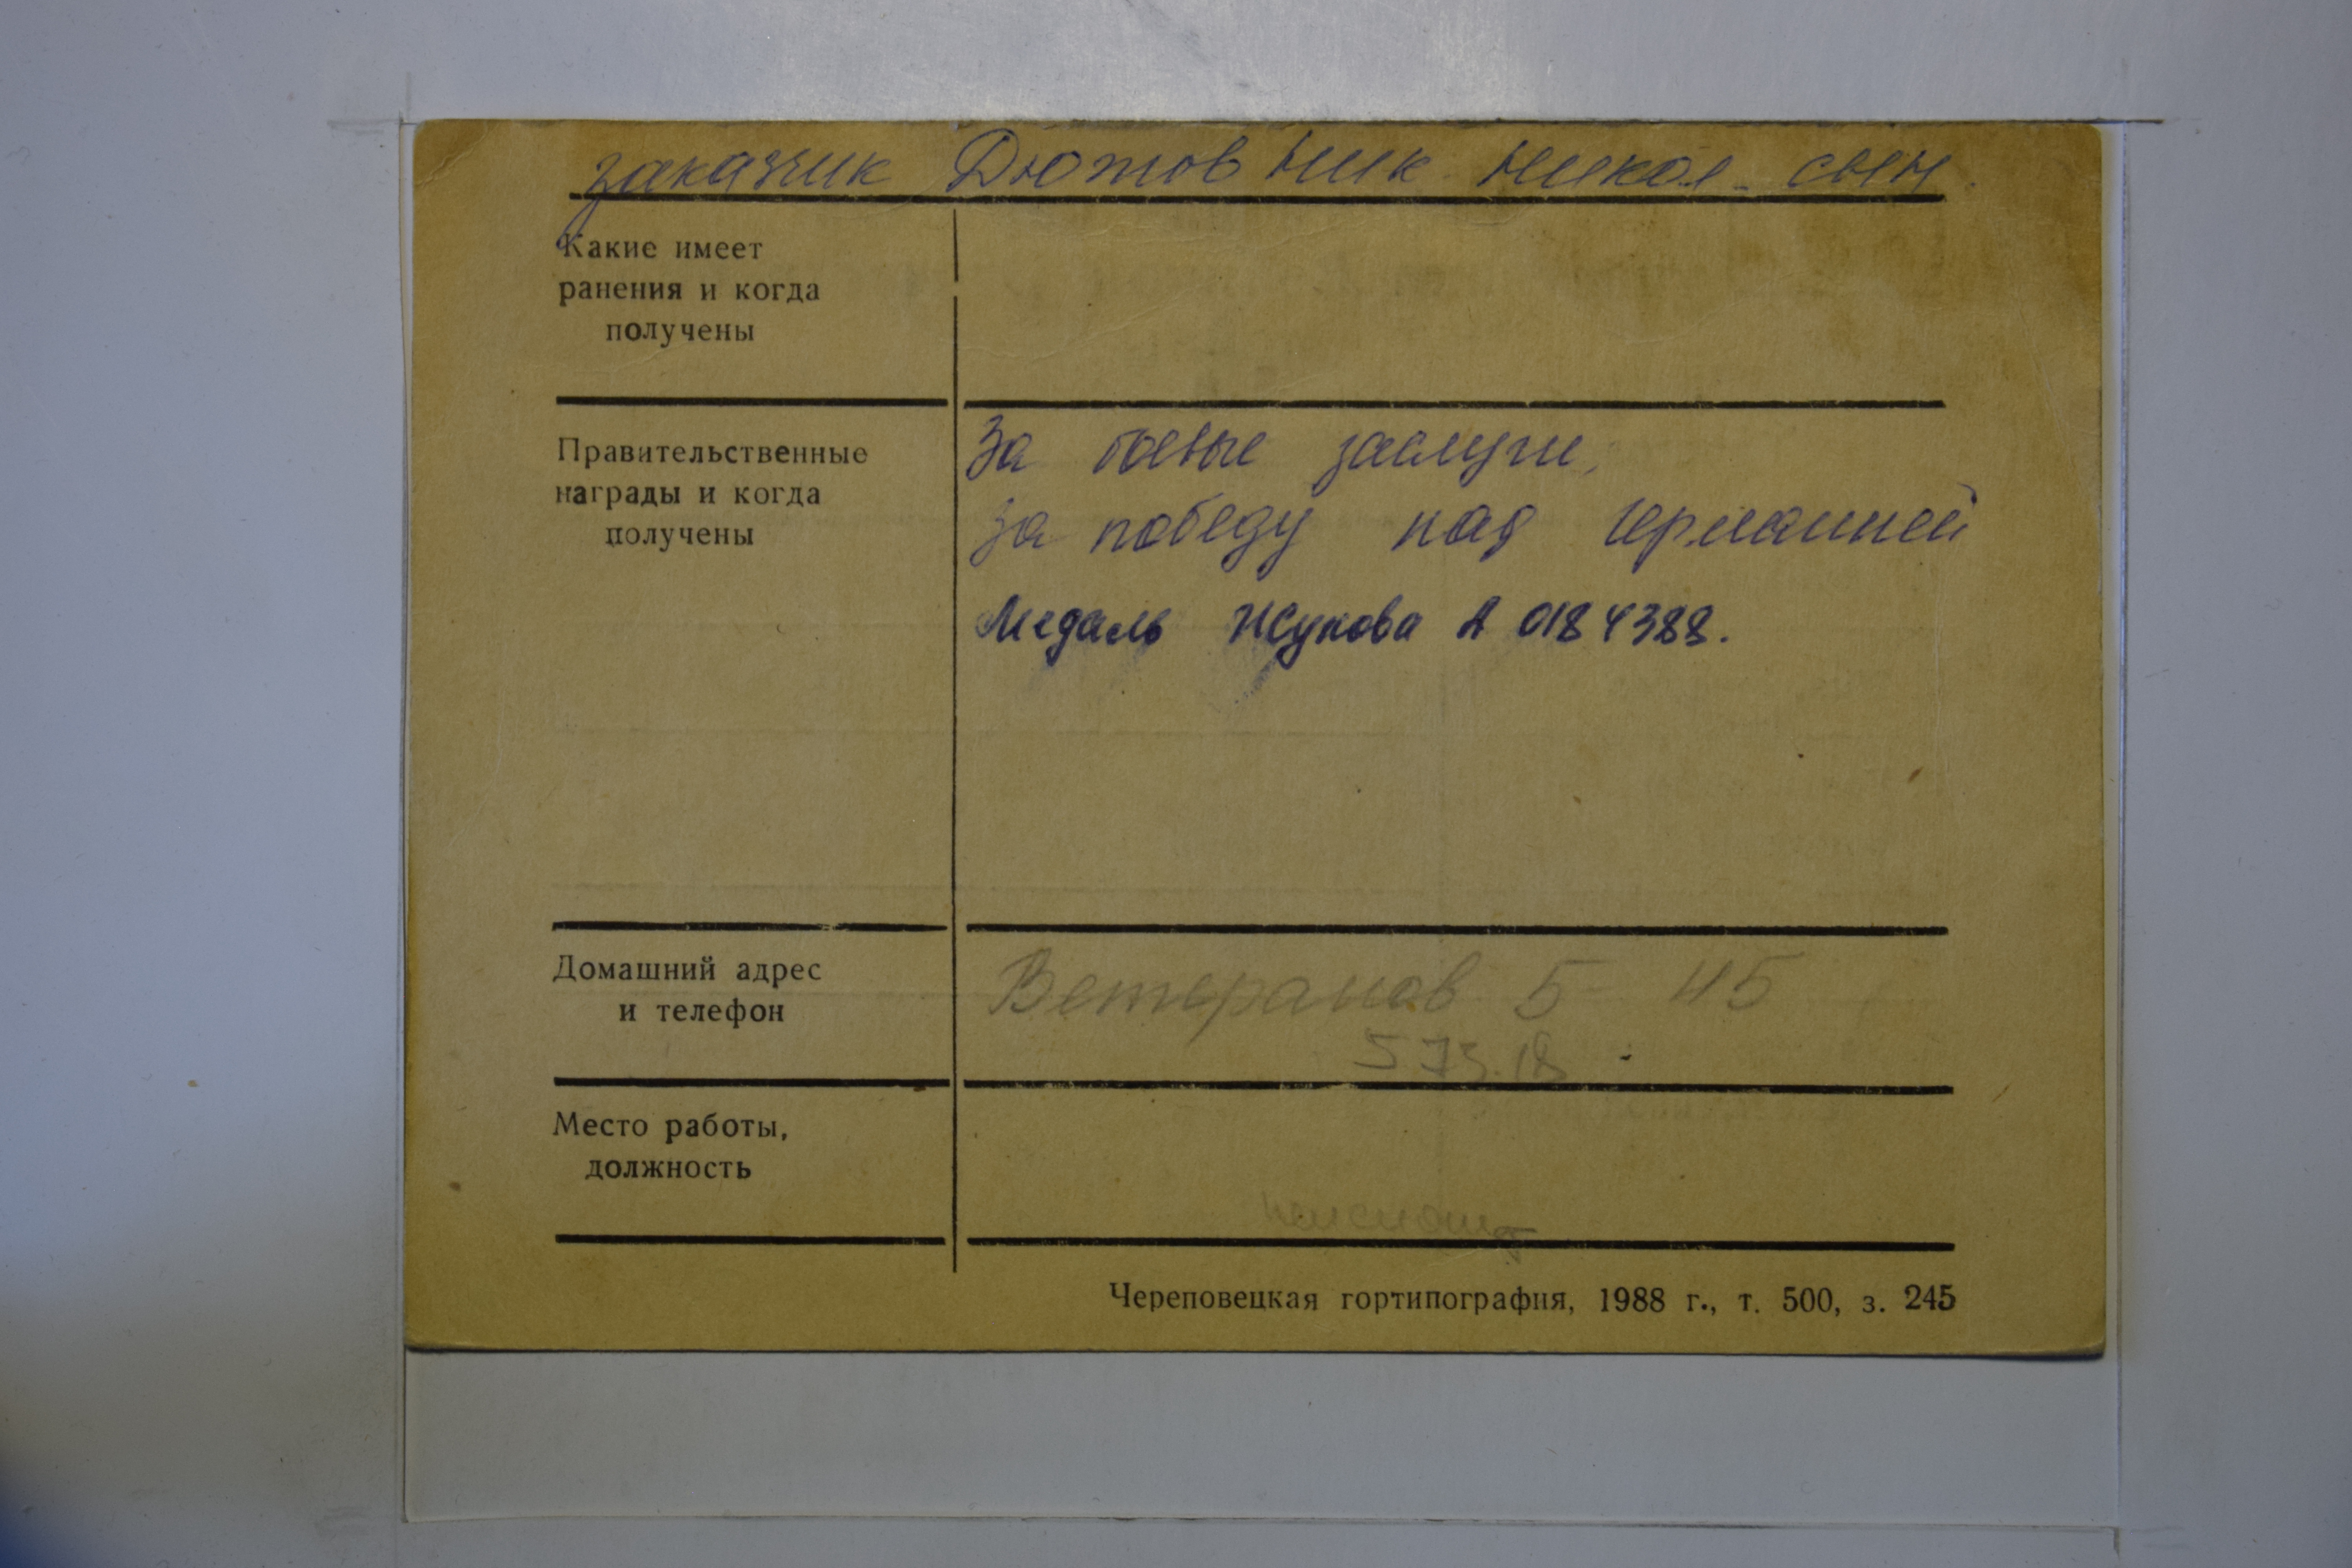 заказчик Дютов Ник Никол. сын.
Какие имеет
ранения и когда
получены
Правительственные
награды и когда
получены
За боевые заслуги,
за победу над Германией
Медаль Жукова А 0184388.
Домашний адрес
и телефон
Ветеранов 5 - 45
5 73.18
Место работы,
должность
Череповецкая гортипография, 1988 г., т. 500, з. 245